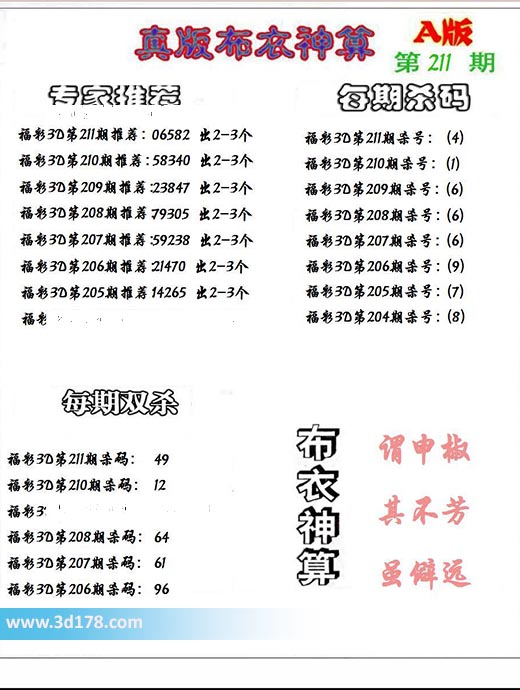 真版布衣神算
A版
第 211 期
专家推荐
福彩3D第211期推荐：06582 出2-3个
福彩3D第210期推荐：58340 出2-3个
福彩3D第209期推荐：23847 出2-3个
福彩3D第208期推荐：79305 出2-3个
福彩3D第207期推荐：59238 出2-3个
福彩3D第206期推荐：21470 出2-3个
福彩3D第205期推荐：14265 出2-3个
福彩
每期杀码
福彩3D第211期杀号：(4)
福彩3D第210期杀号：(1)
福彩3D第209期杀号：(6)
福彩3D第208期杀号：(6)
福彩3D第207期杀号：(6)
福彩3D第206期杀号：(9)
福彩3D第205期杀号：(7)
福彩3D第204期杀号：(8)
每期双杀
福彩3D第211期杀码： 49
福彩3D第210期杀码： 12
福彩3
福彩3D第208期杀码： 64
福彩3D第207期杀码： 61
福彩3D第206期杀码： 96
布衣神算
谓申椒
其不芳
虽僻远
www.3d178.com